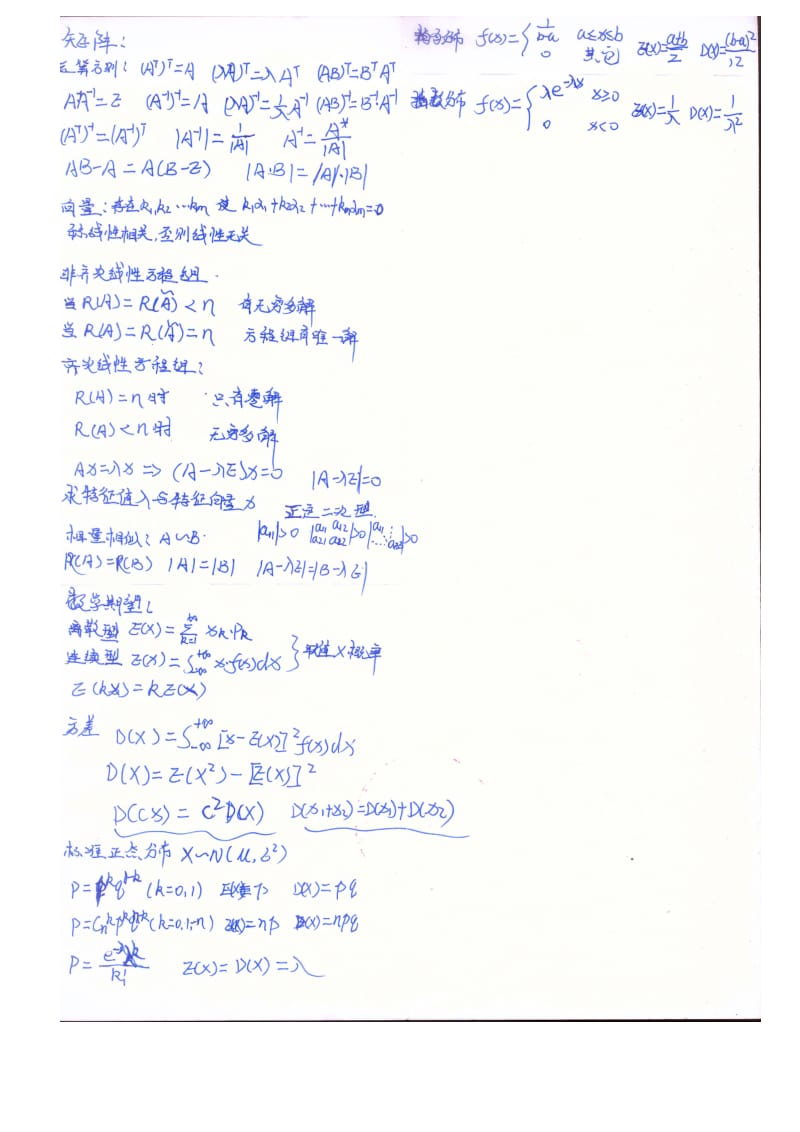 矩阵：
运算方则：(Aᵀ)ᵀ=A (λA)ᵀ=λAᵀ (AB)ᵀ=BᵀAᵀ
AA⁻¹=E (A⁻¹)⁻¹=A (λA)⁻¹=1/λ A⁻¹ (AB)⁻¹=B⁻¹A⁻¹
(Aᵀ)⁻¹=(A⁻¹)ᵀ |A⁻¹|=1/|A| A⁻¹=A*/|A|
AB-A=A(B-E) |A·B|=|A|·|B|
向量：存在k₁,k₂…km 使 k₁α₁+k₂α₂+…+kmαm=0
称线性相关,否则线性无关
非齐次线性方程组.
当R(A)=R(Ã)<n 有无穷多解
当R(A)=R(Ã)=n 方程组有唯一解
齐次线性方程组：
R(A)=n时 只有零解
R(A)<n时 无穷多解
Ax=λx⇒(A-λE)x=0 |A-λE|=0
求特征值λ与特征向量x
正定二次型.
相量相似：A∽B. |a₁₁|>0 |a₁₁ a₁₂ a₂₁ a₂₂|>0
R(A)=R(B) |A|=|B| |A-λE|=|B-λE|
数学期望：
离散型 E(X)=∑(k=1,∞) xk·Pk
连续型 E(X)=∫₋∞⁺∞ x·f(x)dx } 取值×概率
E(kx)=kE(x)
方差 D(X)=∫₋∞⁺∞[x-E(X)]²f(x)dx
D(X)=E(X²)-[E(X)]²
D(CX)=C²D(X) D(x₁+x₂)=D(x₁)+D(x₂)
标准正态分布 X∽N(μ,σ²)
P=pᵏq¹⁻ᵏ(k=0,1) D(X)=pq
P=Cₙᵏpᵏqⁿ⁻ᵏ(k=0,1…n) E(X)=np D(X)=npq
P=e^(-λ)λᵏ/k! E(X)=D(X)=λ
分布 f(x)={1/(b-a) a≤x≤b; 0 其它 E(X)=(a+b)/2 D(X)=(b-a)²/12
指数分布 f(x)={λe^(-λx) x≥0; 0 x<0 E(X)=1/λ D(X)=1/λ²